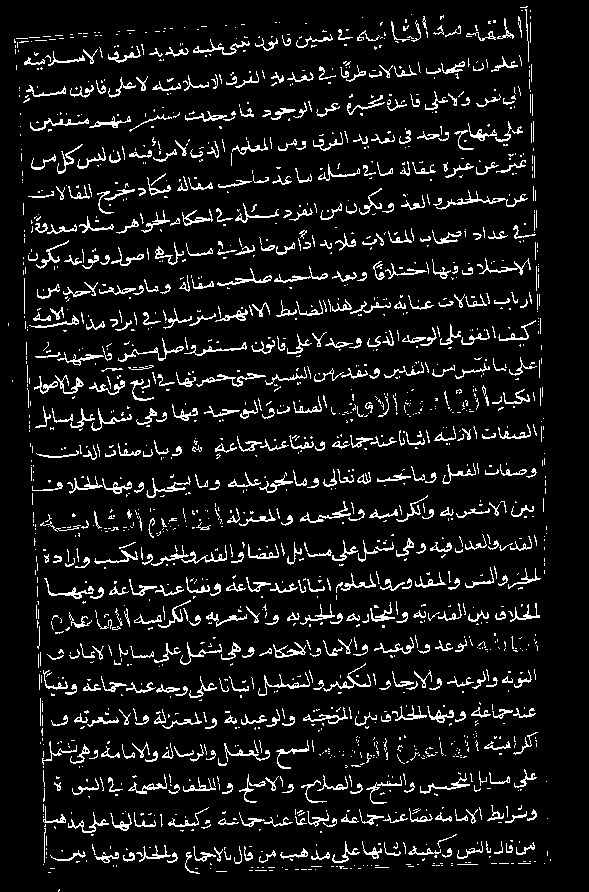 المقدمة الثانية في تعيين قانون تبنى عليه تعديد الفرق الاسلاميه
اعلم ان اصحاب المقالات طرقا في تعديد الفرق الاسلاميه لا على قانون مستند
الى نص ولا على قاعدة مخبرة عن الوجود فما وجدت منهم متفقين
على منهاج واحد في تعديد الفرق ومن المعلوم الذي لا مرا فيه ان ليس كل من
تميز عن غيره بمقالة ما في مسئلة ما عد صاحب مقالة فيكاد تخرج المقالات
عن حد الحصر والعد ويكون من انفرد بمسئلة في احكام الجواهر مثلا معدودا
في عداد اصحاب المقالات فلا بد اذا من ضابط في مسايل هي اصول وقواعد يكون
الاختلاف فيها اختلافا ويعد صاحبه صاحب مقالة وما وجدت لاحد من
ارباب المقالات عناية بتقرير هذا الضابط الا انهم استرسلوا في ايراد مذاهب الامة
كيف اتفق على الوجه الذي وجد لا على قانون مستقر واصل مستمر فاجتهدت
على ما تيسر من التقدير وتقدر من التيسير حتى حصرتها في اربع قواعد هي الاصول
الكبار القاعدة الاولى الصفات والتوحيد فيها وهي تشتمل على مسايل
الصفات الازلية اثباتا عند جماعة ونفيا عند جماعة وبيان صفات الذات
وصفات الفعل وما يجب لله تعالى وما يجوز عليه وما يستحيل وفيها الخلاف
بين الاشعريه والكراميه والمجسمه والمعتزلة القاعدة الثانيه
القدر والعدل فيه وهي تشتمل على مسايل القضا والقدر والجبر والكسب وارادة
الخير والشر والمقدور والمعلوم اثباتا عند جماعة ونفيا عند جماعة وفيها
الخلاف بين القدريه والنجاريه والجبريه والاشعريه والكراميه القاعدة
الثالثه الوعد والوعيد والاسما والاحكام وهي تشتمل على مسايل الايمان و
التوبه والوعيد والارجا والتكفير والتضليل اثباتا على وجه عند جماعة ونفيا
عند جماعة وفيها الخلاف بين المرجئيه والوعيدية والمعتزلة والاشعريه و
الكراميه القاعدة الرابعه السمع والعقل والرساله والامامة وهي تشتمل
على مسايل التحسين والتقبيح والصلاح والاصلح واللطف والعصمة في النبوة
وشرايط الامامة نصا عند جماعة واجماعا عند جماعة وكيفيه انتقالها على مذهب
من قال بالنص وكيفيه اثباتها على مذهب من قال بالاجماع والخلاف فيها بين